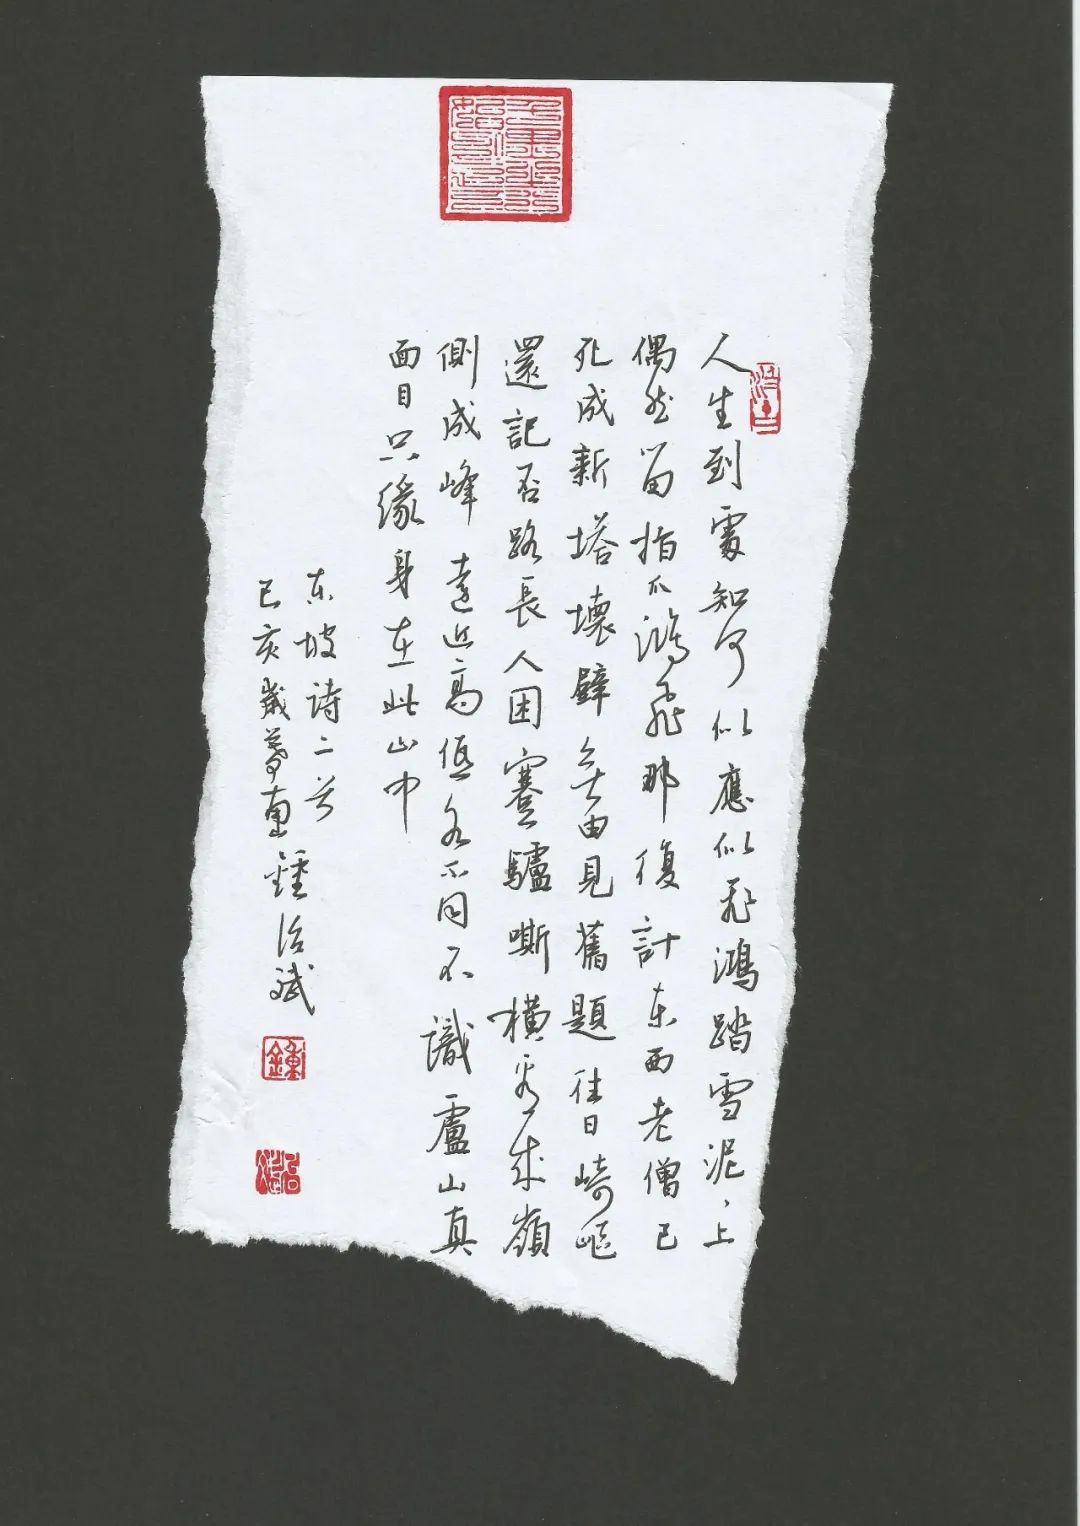 人生到處知何似應似飛鴻踏雪泥、上
偶然留指爪鴻飛那復計东西老僧已
死成新塔壞壁無由見舊題往日崎嶇
還記否路長人困蹇驢嘶橫看成嶺
側成峰遠近高低各不同不識盧山真
面目只緣身在此山中
东坡诗二首
己亥歲暮鍾治斌
鍾
治斌